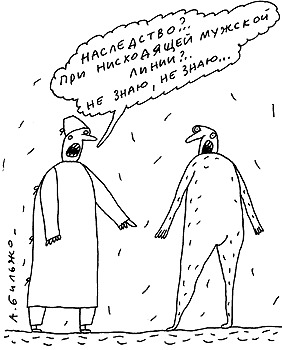 НАСЛЕДСТВО?..
ПРИ НИСХОДЯЩЕЙ МУЖСКОЙ
ЛИНИИ?..
НЕ ЗНАЮ, НЕ ЗНАЮ...
А. БИЛЬЖО